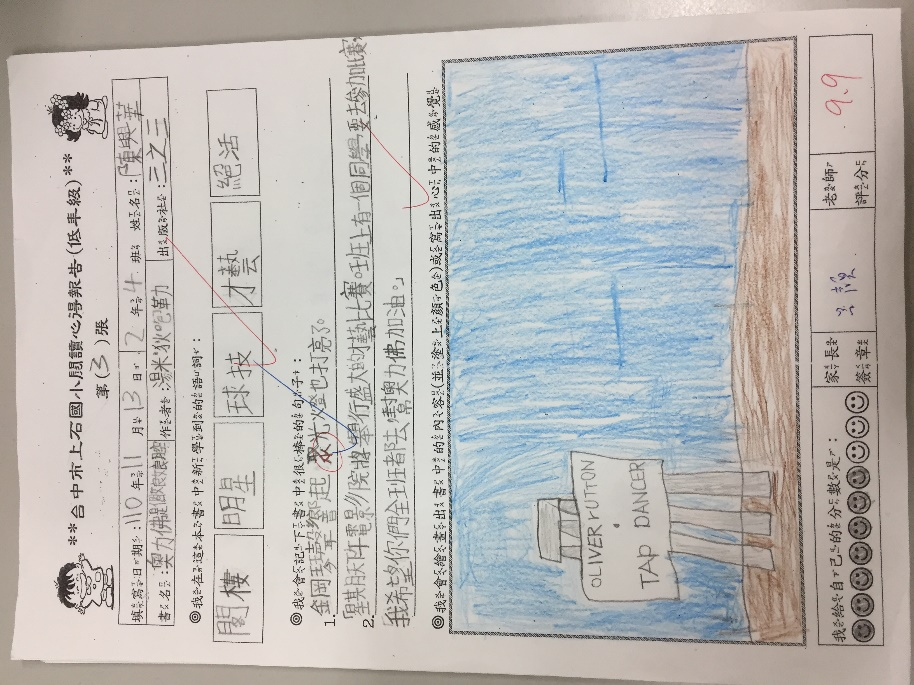 **台中市上石國小閱讀心得報告(低年級)**
第(3)張
填寫日期:110年11月13日 2年4班 姓名:陳興華
書名:奧力佛是個娘娘腔 作者:湯米狄咆勒 出版社:三之三
◎我在這本書中新學到的語詞:
閣樓 明星 球技 才藝 絕活
◎我會記下書中很棒的句子:
1. 鋼琴聲響起,聚光燈也打亮了。
2. 星期天阡電影院將舉行盛大的才藝比賽,班上有一個同學要去參加比賽,
我希望你們全班都去幫奧力佛加油。」
◎我會繪畫出書中的內容(並塗上顏色)或寫出心中的感覺
OLIVER BUTTON
TAP DANCER
我給自己的分數是:
家長簽章
老師評分
9.9